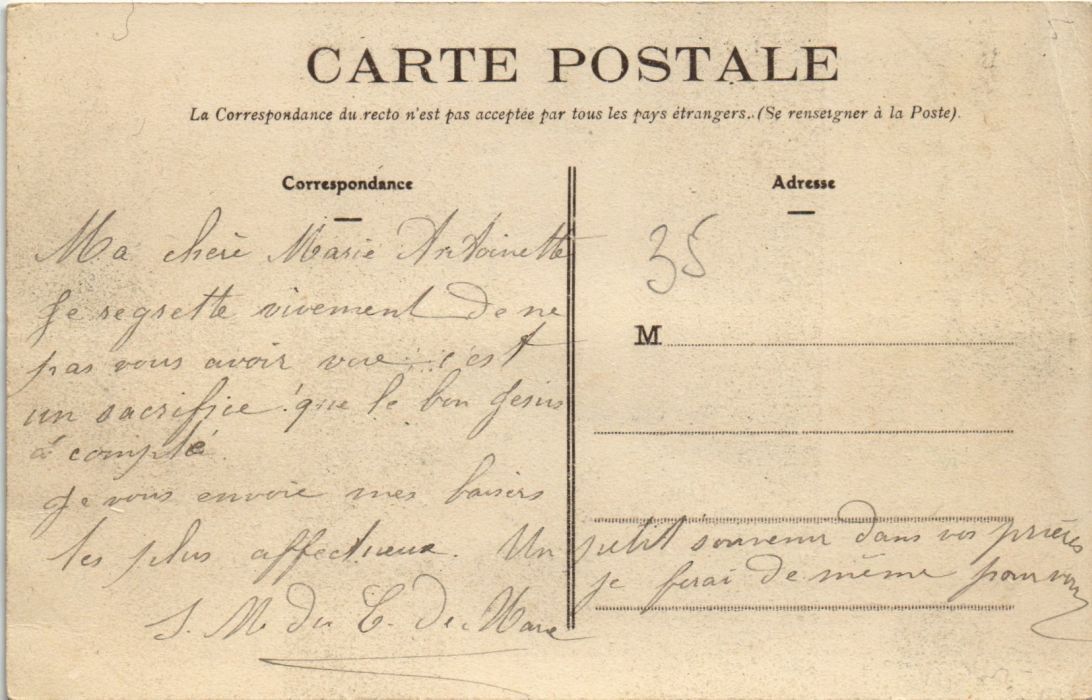 CARTE POSTALE
La Correspondance du recto n'est pas acceptée par tous les pays étrangers. (Se renseigner à la Poste).
Correspondance
Ma chère Marie Antoinette
Je regrette vivement de ne
pas vous avoir vue c'est
un sacrifice que le bon Jesus
à compté
Je vous envoie mes baisers
les plus affectueux. Un petit souvenir dans vos prières
je ferai de même pour vous
S. M. du C. de Marie
Adresse
35
M